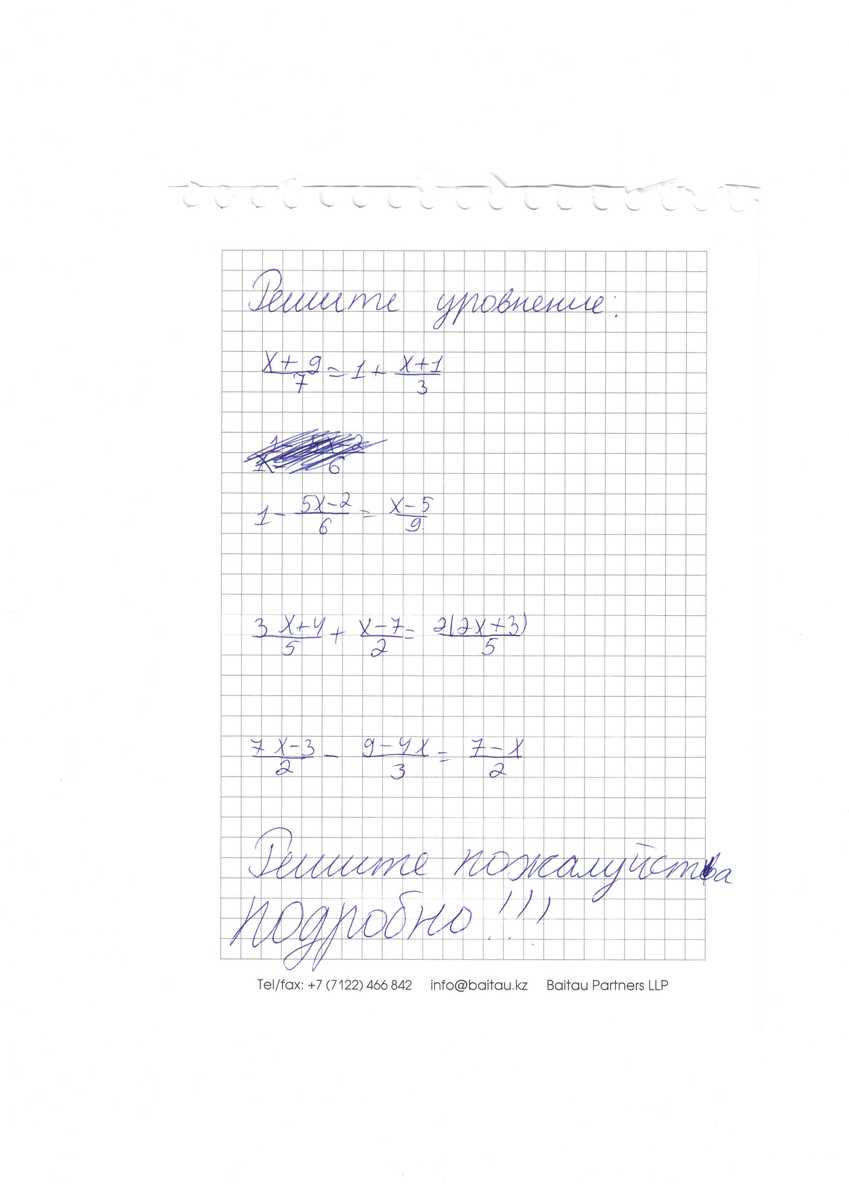 Решите уровнение:
x+9/7 = 1 + x+1/3
1 - 5x-2/6 = x-5/9
3x+4/5 + x-7/2 = 2(2x+3)/5
7x-3/2 - 9-4x/3 = 7-x/2
Решите пожалуйства
подробно!!!
Tel/fax: +7 (7122) 466 842 info@baitau.kz Baitau Partners LLP